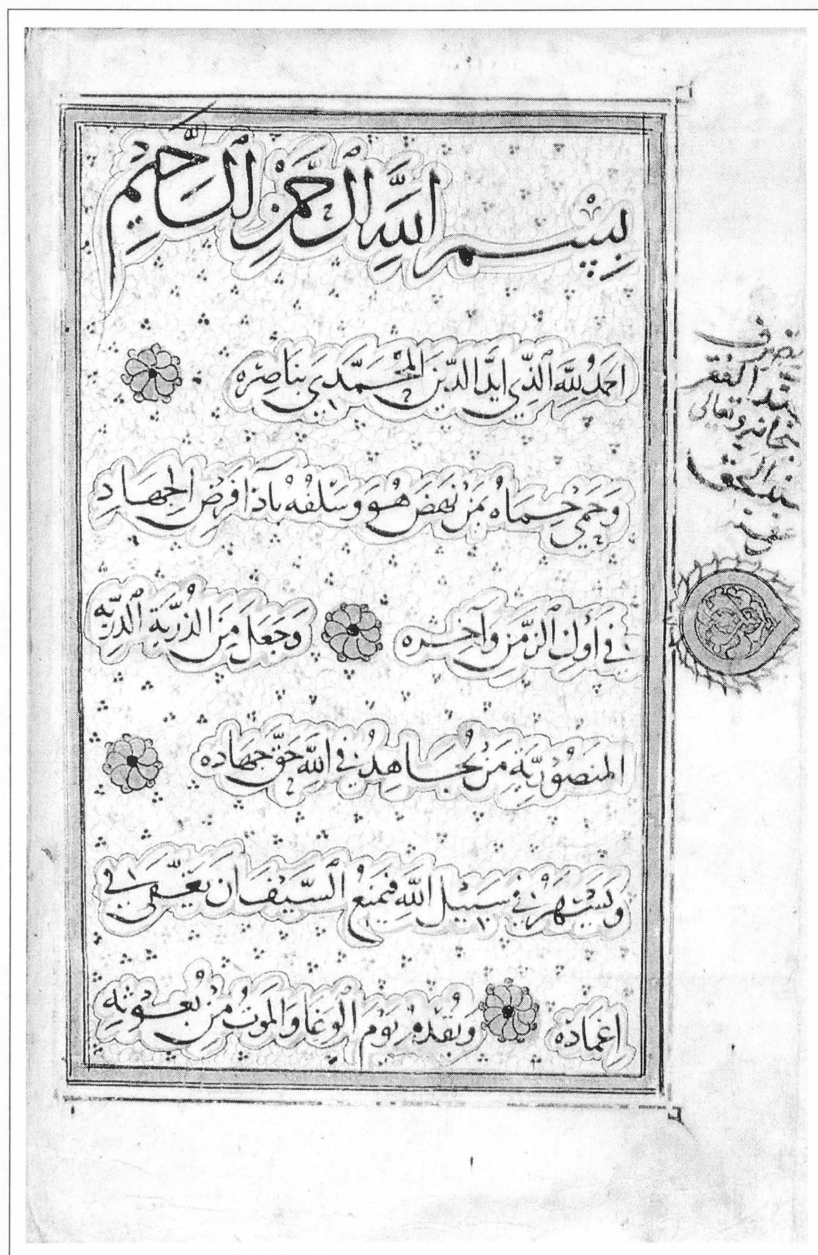 بِسْمِ اللَّهِ الرَّحْمَنِ الرَّحِيمِ
احمَدُ لِلَّهِ الَّذِي ايَّدَ الدِّينَ المُحَمَّدِيَّ بِنَاصِرِه
وَحَمَى حِمَاهُ بِمَنْ نَهَضَ هُوَ وَسَلَفُهُ بِأَدَاءِ فَرْضِ الجِهَادِ
فِي أَوَّلِ الزَّمَنِ وَآخِرِه وَجَعَلَ مِنَ الذُّرِّيَّةِ الدُّرِّيَّهِ
المَنصُورِيَّةِ مَنْ يُجَاهِدُ فِي اللَّهِ حَقَّ جِهَادِه
وَيَسْهَرُ فِي سَبِيلِ اللَّهِ فَيَمْنَعُ السَّيْفَ انْ يَغْفَى فِي
اغمَادِه وَيُقَدِّمُ يَوْمَ الوَغَا وَالمَوْتُ مِنْ بُعُوثِهِ